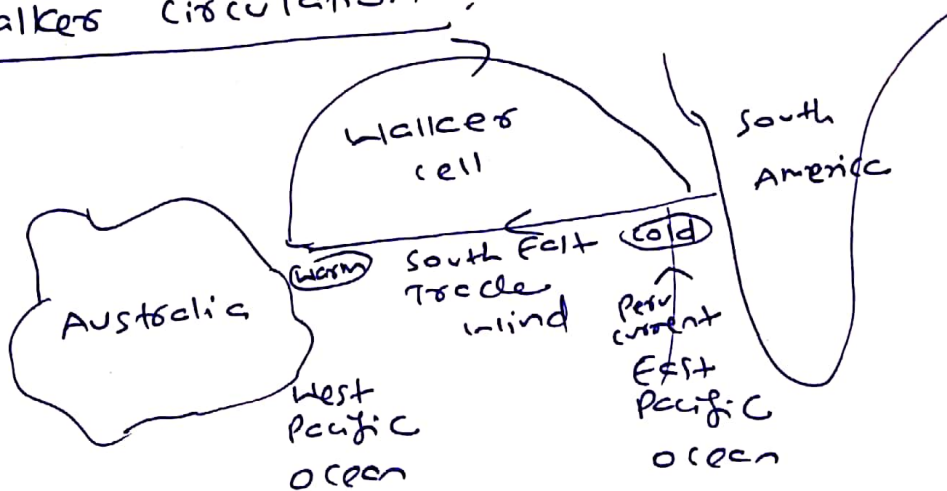 alker Circulation:
Walker
cell
South
America
Australia
warm
South East
Trade
wind
cold
Peru
current
West
Pacific
ocean
East
Pacific
ocean